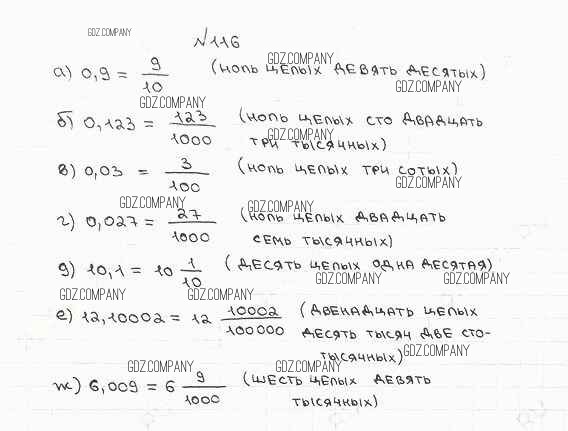 GDZ.COMPANY
№116
GDZ.COMPANY
а) 0,9 = 9/10 (ноль целых девять десятых)
GDZ.COMPANY
GDZ.COMPANY
б) 0,123 = 123/1000 (ноль целых сто двадцать
GDZ.COMPANY
три тысячных)
в) 0,03 = 3/100 (ноль целых три сотых)
GDZ.COMPANY
GDZ.COMPANY GDZ.COMPANY
г) 0,027 = 27/1000 (ноль целых двадцать
семь тысячных)
д) 10,1 = 10 1/10 (десять целых одна десятая)
GDZ.COMPANY GDZ.COMPANY
GDZ.COMPANY GDZ.COMPANY
е) 12,10002 = 12 10002/100000 (двенадцать целых
десять тысяч две сто-
тысячных)
GDZ.COMPANY
GDZ.COMPANY GDZ.COMPANY
ж) 6,009 = 6 9/1000 (шесть целых девять
тысячных)